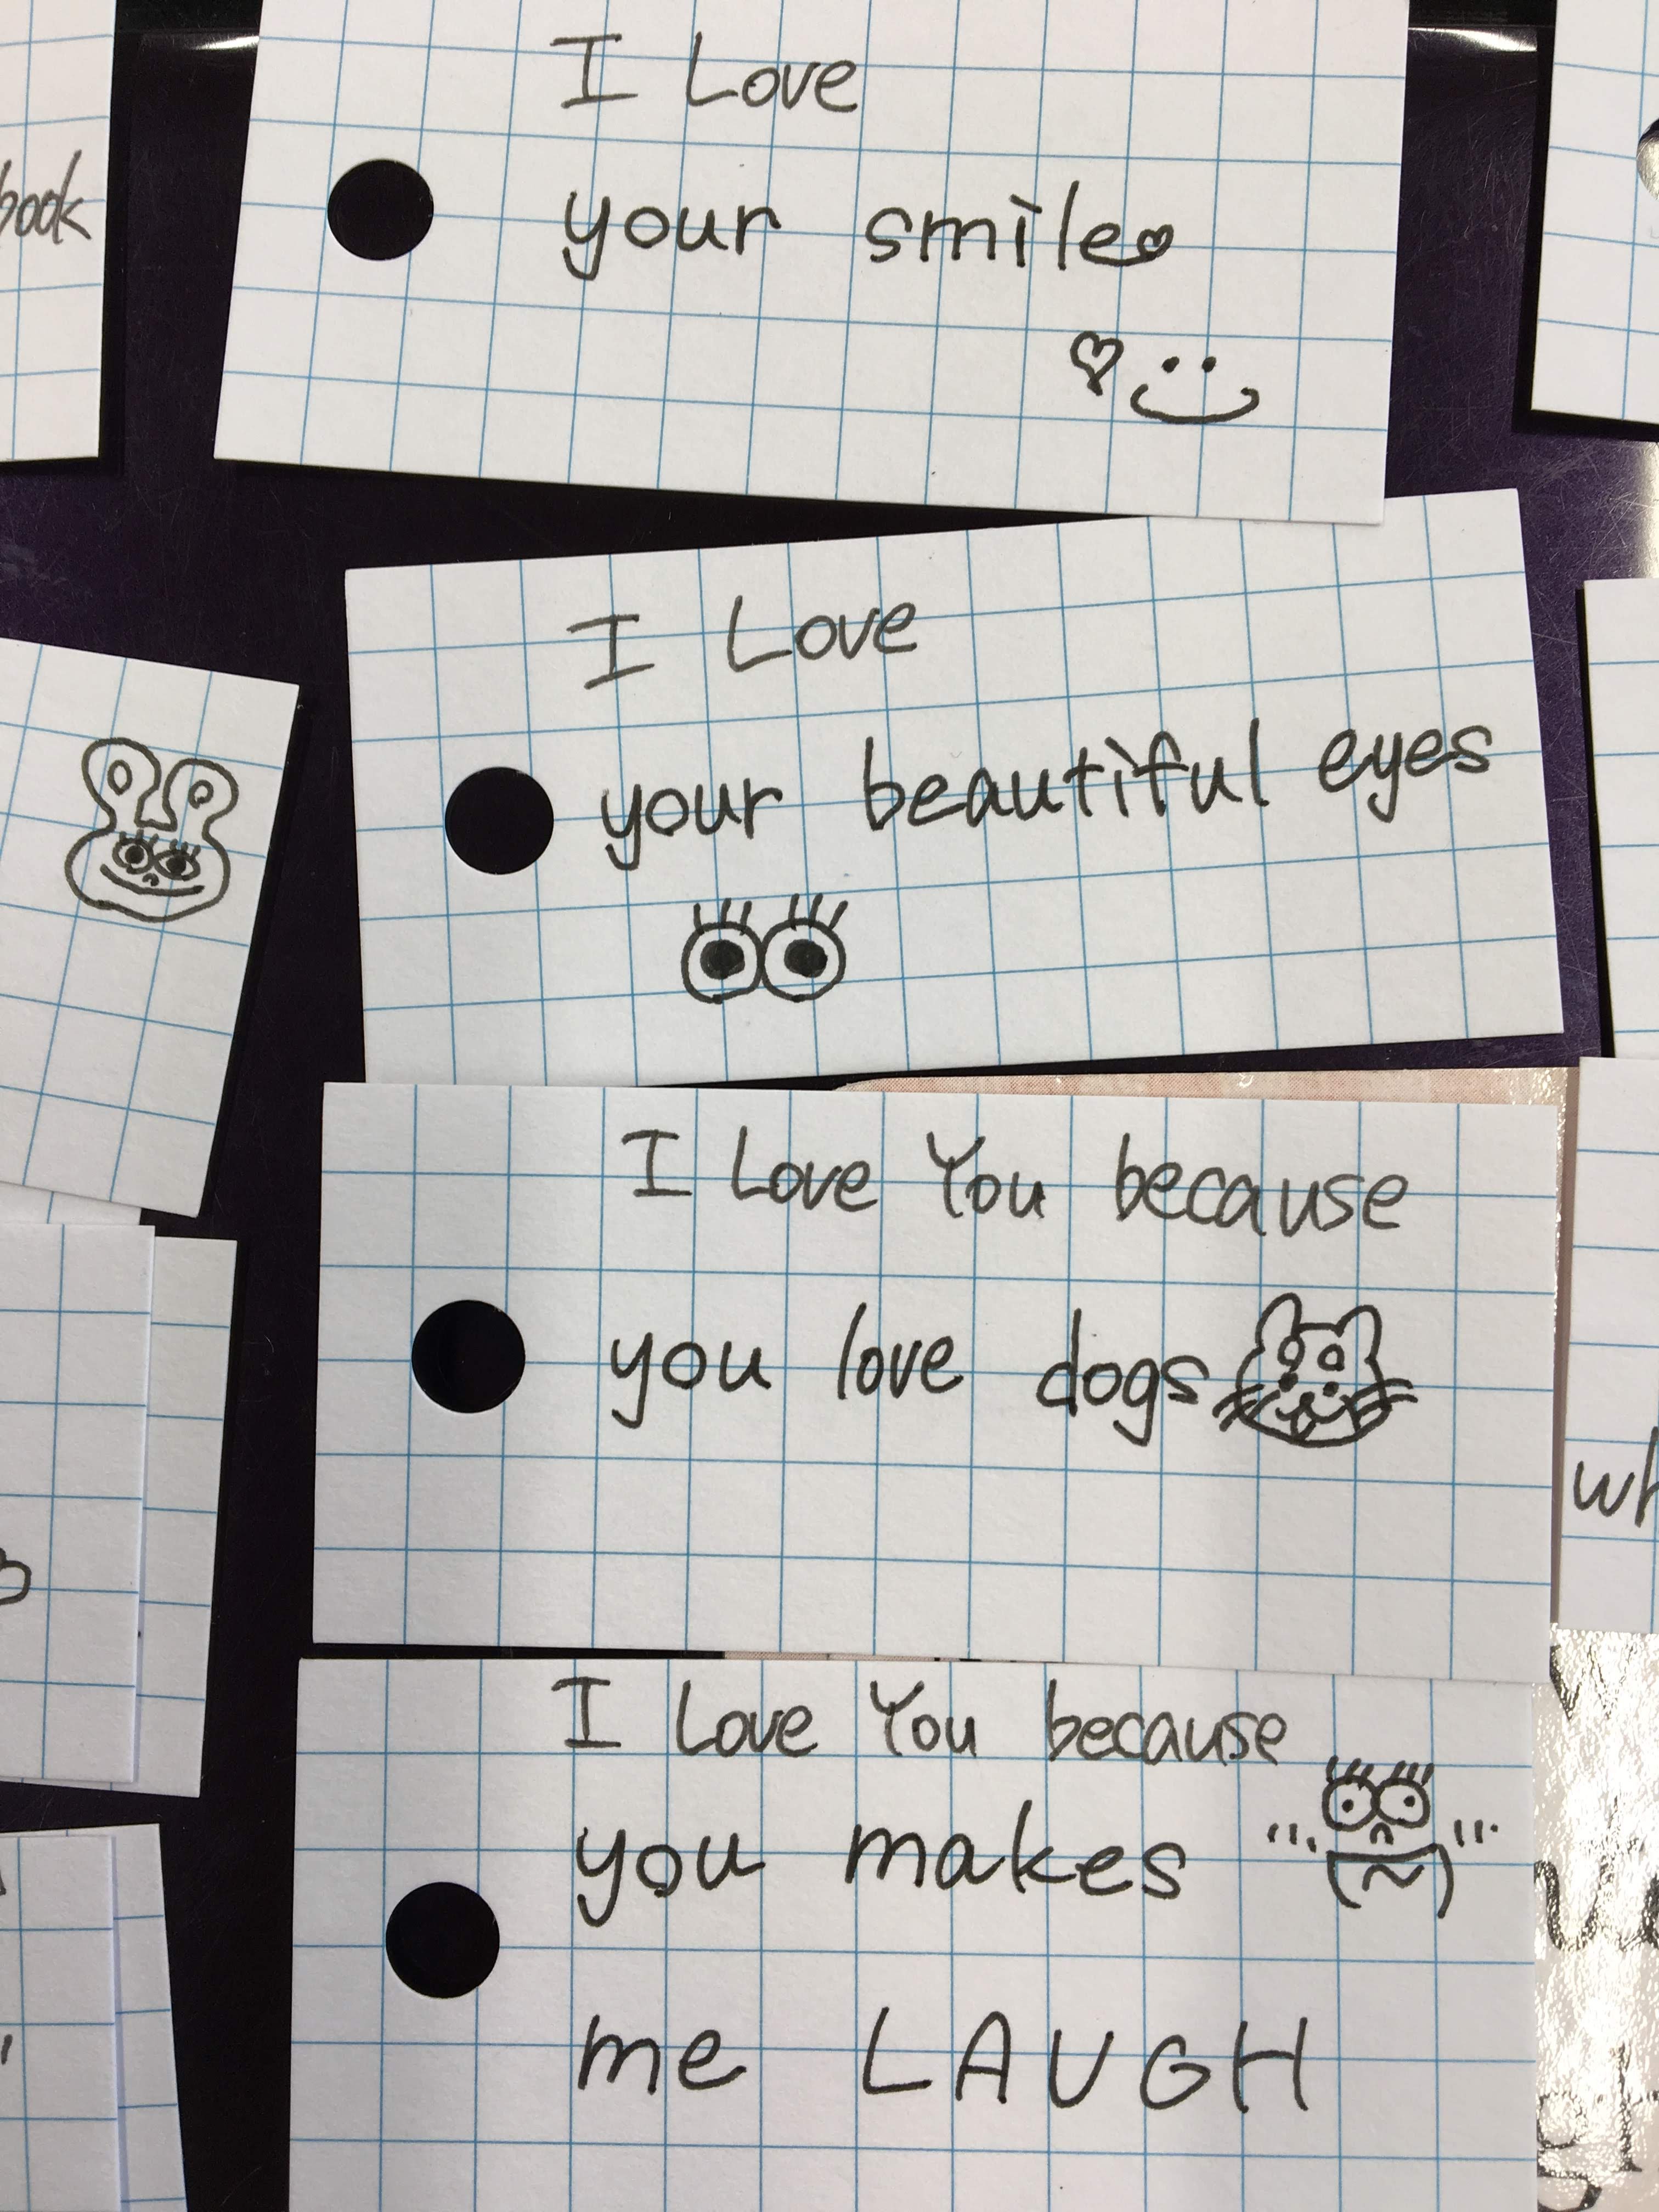 I Love
your smile
book
I Love
your beautiful eyes
I Love You because
you love dogs
I Love You because
you makes
me LAUGH